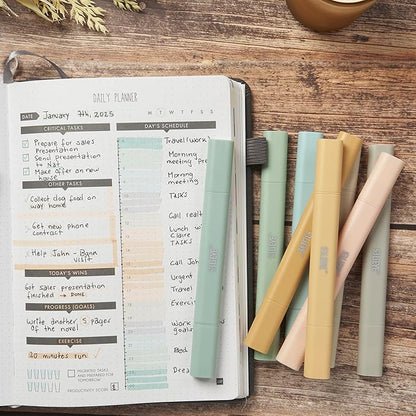 DAILY PLANNER
DATE January 7th, 2025
M T W T F S S
CRITICAL TASKS
Prepare for sales
presentation
Send presentation
to Nat
Make offer on new
house
OTHER TASKS
Collect dog food on
way home
Get new phone
contract
Help John - Bann
visit
TODAY'S WINS
Got sales presentation
finished → DONE
PROGRESS (GOALS)
Write another 5 pages
of the novel
EXERCISE
20 minutes run
MIGRATED TASKS
AND PREPARED FOR
TOMORROW
PRODUCTIVITY SCORE
DAY'S SCHEDULE
Travel (work)
Morning
meeting
Morning
meeting
TASKS
Call
Lunch with
Claire
TASKS
Call
Urgent
Travel
Exercise
Work
goals